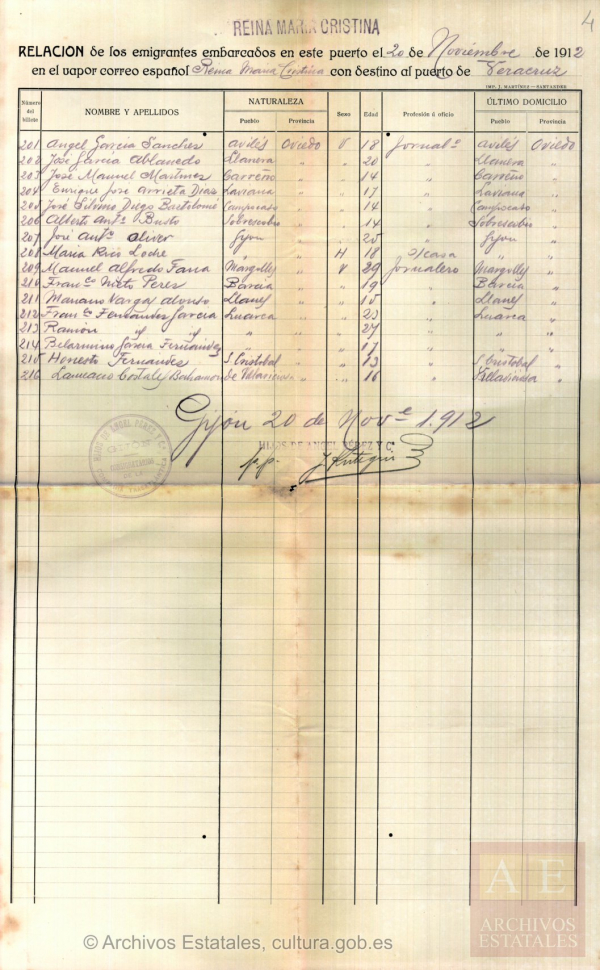 REINA MARIA CRISTINA
4
RELACION de los emigrantes embarcados en este puerto el 20 de Noviembre de 1912
en el vapor correo español Reina Maria Cristina con destino al puerto de Veracruz
IMP. J. MARTÍNEZ.—SANTANDER
Número del billete NOMBRE Y APELLIDOS NATURALEZA Pueblo Provincia Sexo Edad Profesión ú oficio ÚLTIMO DOMICILIO Pueblo Provincia
201 Angel Garcia Sanchez Avilés Oviedo V 18 Jornalº Avilés Oviedo
202 José Garcia Ablanedo Llanera " " 20 " Llanera "
203 José Manuel Martinez Carreño " " 14 " Carreño "
204 Enrique José Arrieta Diaz Laviana " " 17 " Laviana "
205 José Silvino Diego Bartolomé " " 14 " "
206 Alberto Antº Busto Sobrescobio " " 14 " Sobrescobio "
207 José Antº Oliver Gijon " " 25 " Gijon "
208 Maria Rios " " H 18 " "
209 Manuel Alfredo Faria Margolles " V 29 Jornalero Margolles "
210 Franco Nieto Perez Barcia " " 19 " Barcia "
211 Mariano Vargas Alonso Llanes " " 15 " Llanes "
212 Franco Fernandez Garcia Luarca " " 23 " Luarca "
213 Ramón " " " " " 27 " " "
214 Belarmino Garcia Fernández " " " 17 " " "
215 Honesto Fernandez S. Cristobal " " 13 " S. Cristobal "
216 Laureano Costales de Villaviciosa " " 16 " Villaviciosa "
Gijón 20 de Nove 1.912
HIJOS DE ANGEL PÉREZ Y Cª
p.p.
© Archivos Estatales, cultura.gob.es
AE
ARCHIVOS
ESTATALES